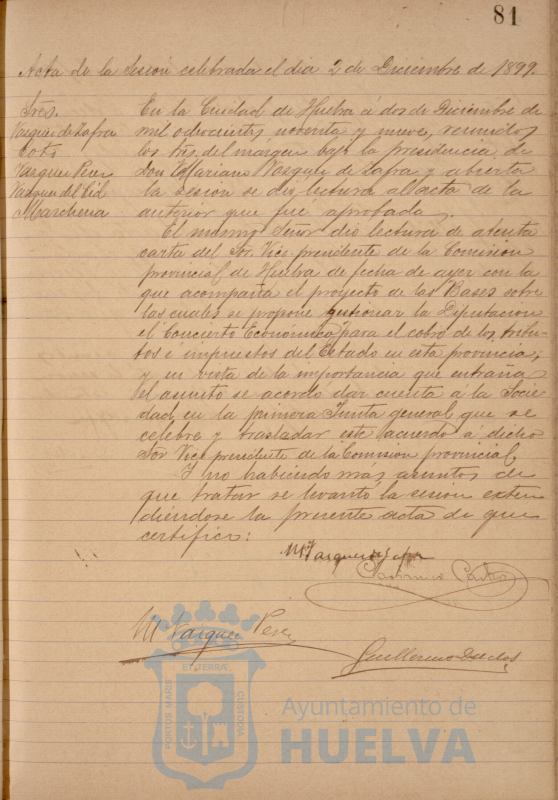 81
Acta de la Sesión celebrada el dia 2 de Diciembre de 1899.
Sres.
Vazquez de Zafra
Coto
Vazquez Perez
Vazquez del Cid
Marchena
En la Ciudad de Huelva á dos de Diciembre de
mil ochocientos noventa y nueve, reunidos
los Sres. del margen bajo la presidencia de
Don Mariano Vazquez de Zafra y abierta
la sesion se dió lectura al acta de la
anterior que fué aprobada.
El mismo Señor dió lectura de atenta
carta del Sor. Vice presidente de la Comision
provincial de Huelva de fecha de ayer con la
que acompaña el proyecto de las Bases sobre
las cuales se propone gestionar la Diputacion
el Concierto Económico para el cobro de los tribu-
tos é impuestos del Estado en esta provincia;
y en vista de la importancia que entraña
el asunto se acordó dar cuenta á la Socie-
dad en la primera Junta general que se
celebre y trasladar este acuerdo á dicho
Sor Vice presidente de la Comision provincial.
Y no habiendo más asuntos de
que tratar se levantó la sesion exten
diéndose la presente acta de que
certifico:
M Vazquez de Zafra
M Vazquez Perez
Guillermo
PORTUS MARIS ET TERRÆ CUSTODIA
Ayuntamiento de
HUELVA